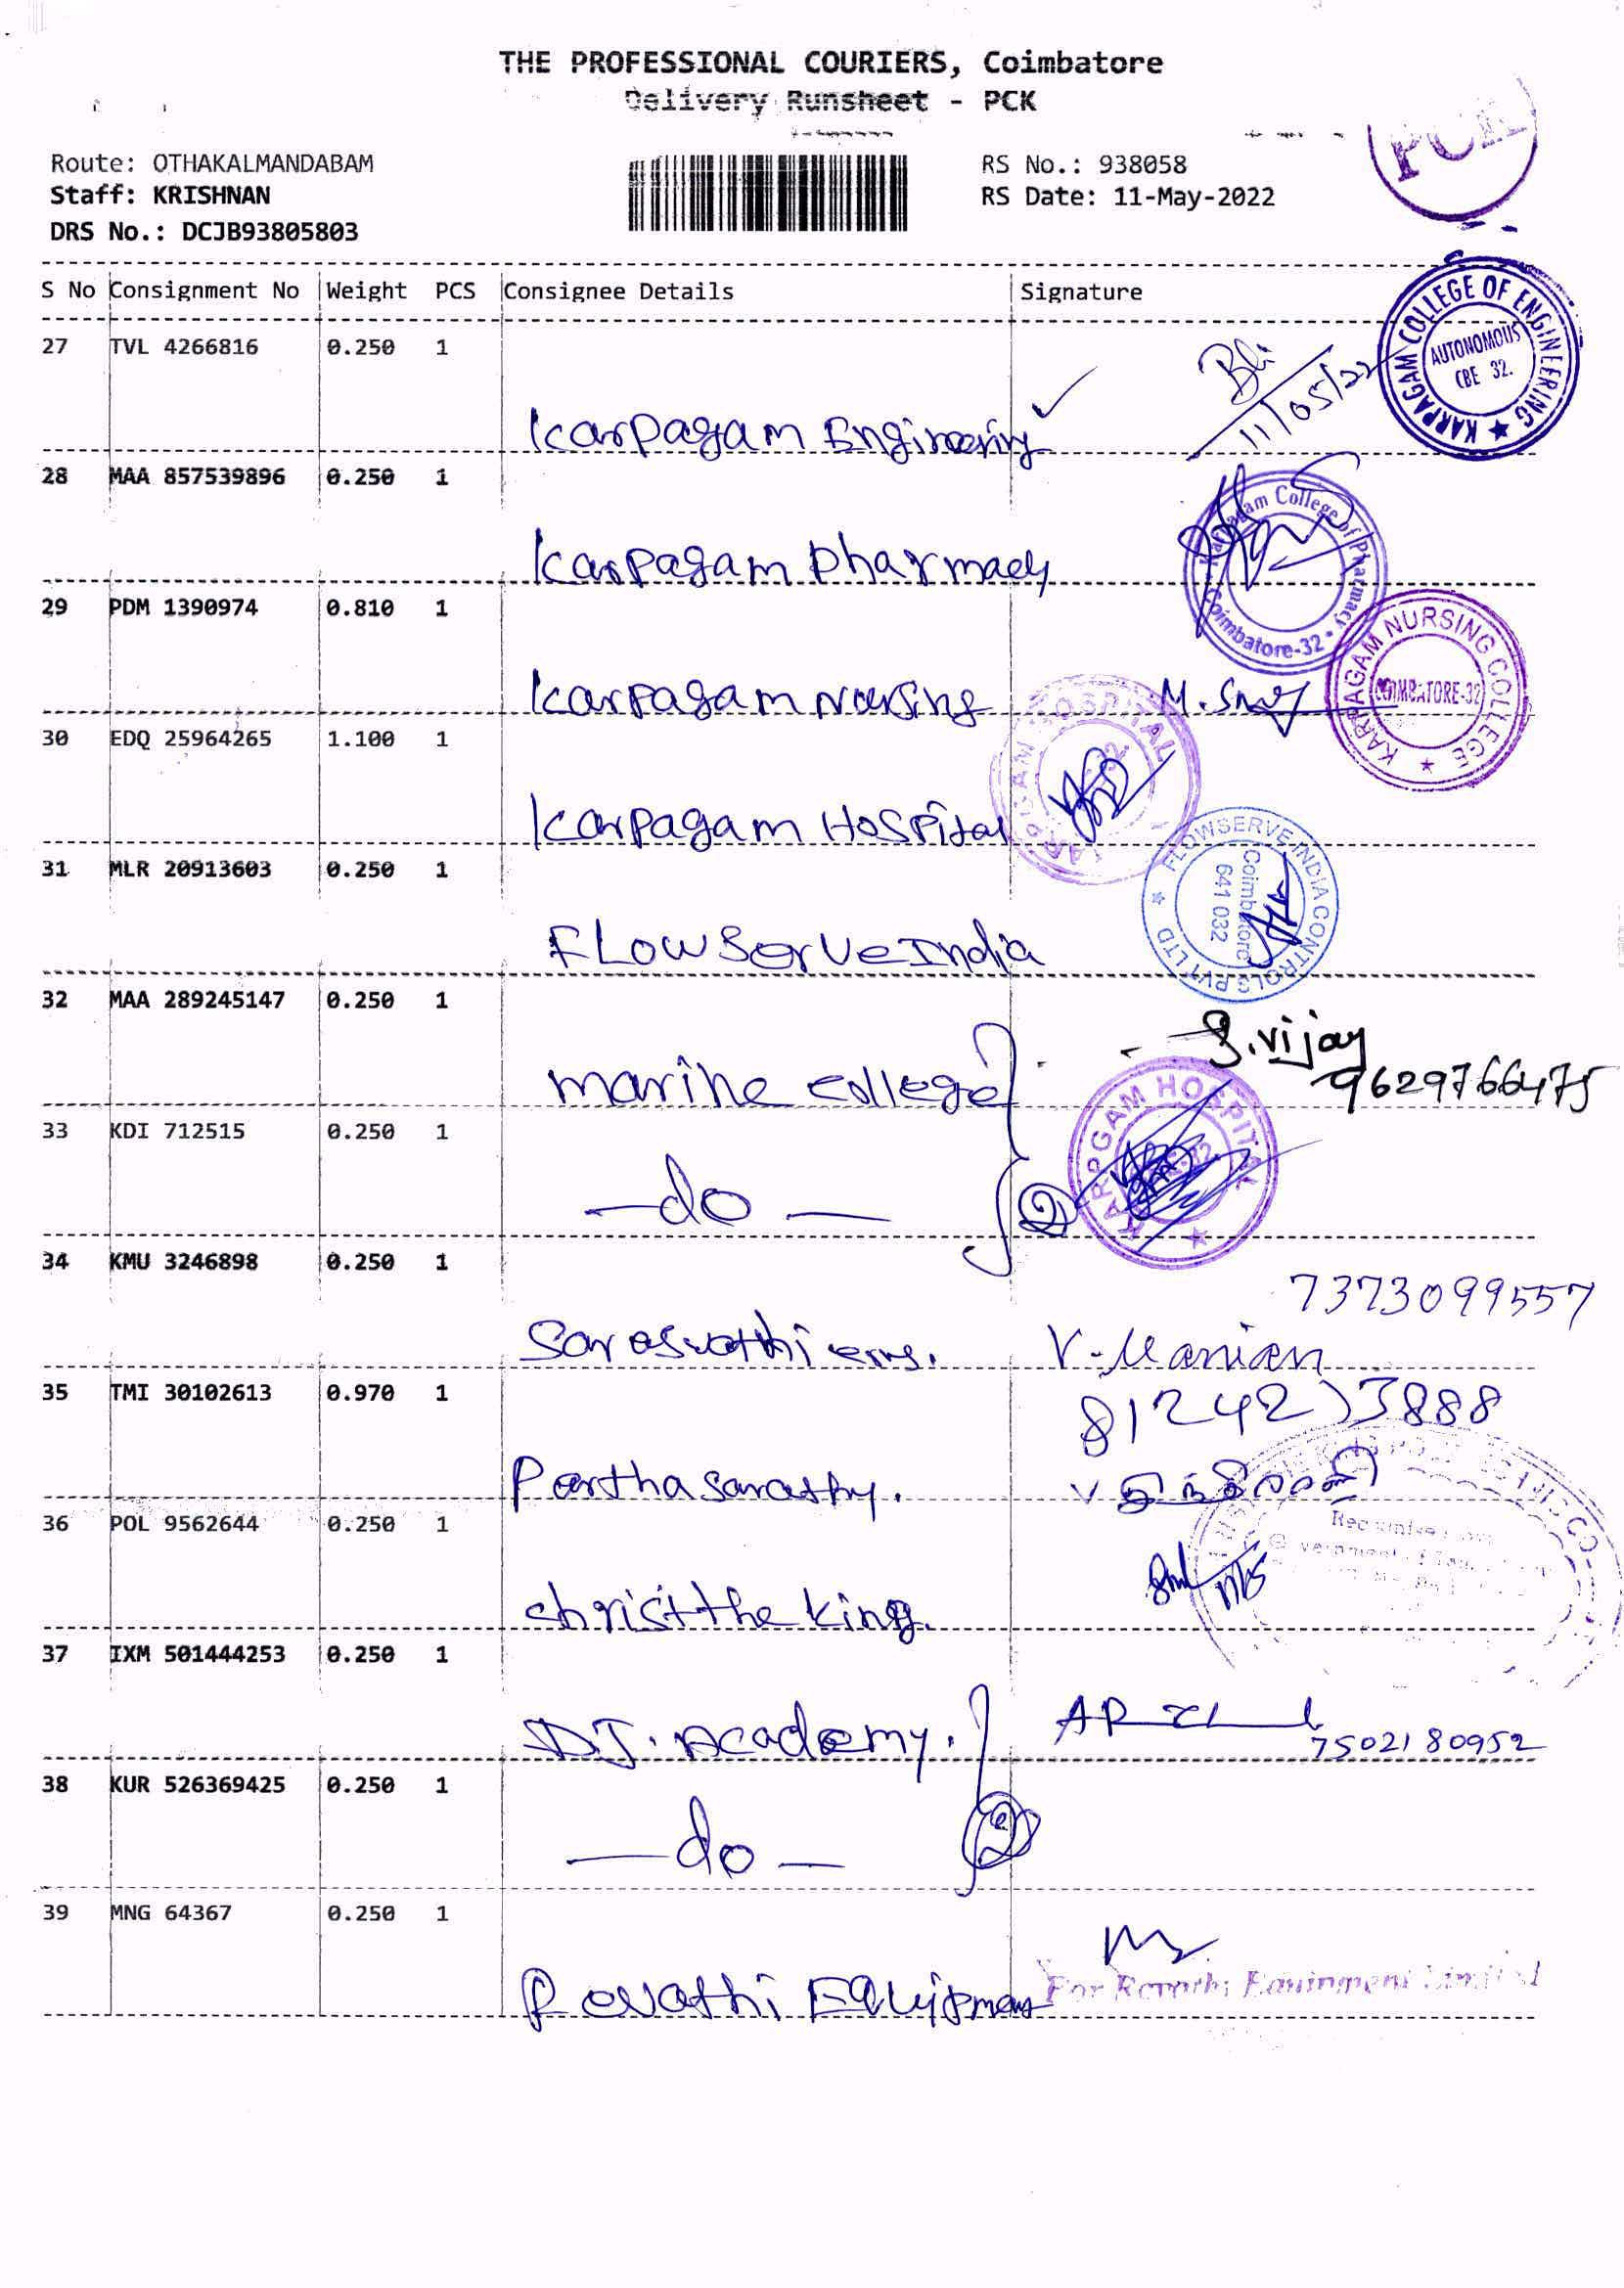 THE PROFESSIONAL COURIERS, Coimbatore
Delivery Runsheet - PCK
Route: OTHAKALMANDABAM
Staff: KRISHNAN
DRS No.: DCJB93805803
RS No.: 938058
RS Date: 11-May-2022
S No Consignment No Weight PCS Consignee Details Signature
KARPAGAM COLLEGE OF ENGINEERING
AUTONOMOUS
CBE 32.
27 TVL 4266816 0.250 1
11/05/22
Karpagam Engineering
28 MAA 857539896 0.250 1
Karpagam College of Pharmacy
Coimbatore-32
Karpagam pharmacy
29 PDM 1390974 0.810 1
KARPAGAM NURSING COLLEGE
COIMBATORE-32
Karpagam Nursing
30 EDQ 25964265 1.100 1
KARPAGAM HOSPITAL
Karpagam Hospital
31 MLR 20913603 0.250 1
FLOWSERVE INDIA CONTROLS PVT LTD
Coimbatore
641 032
FLowserve India
32 MAA 289245147 0.250 1
S.vijay
9629766475
marine college
33 KDI 712515 0.250 1
KARPGAM HOSPITAL
-do-
34 KMU 3246898 0.250 1
7373099557
Saraswathi V. Manian
35 TMI 30102613 0.970 1
Parthasarathy.
36 POL 9562644 0.250 1
christ the king.
37 IXM 501444253 0.250 1
D.J. Academy.
7502180952
38 KUR 526369425 0.250 1
-do-
39 MNG 64367 0.250 1
Revathi Equipment
For Revathi Equipment Limited